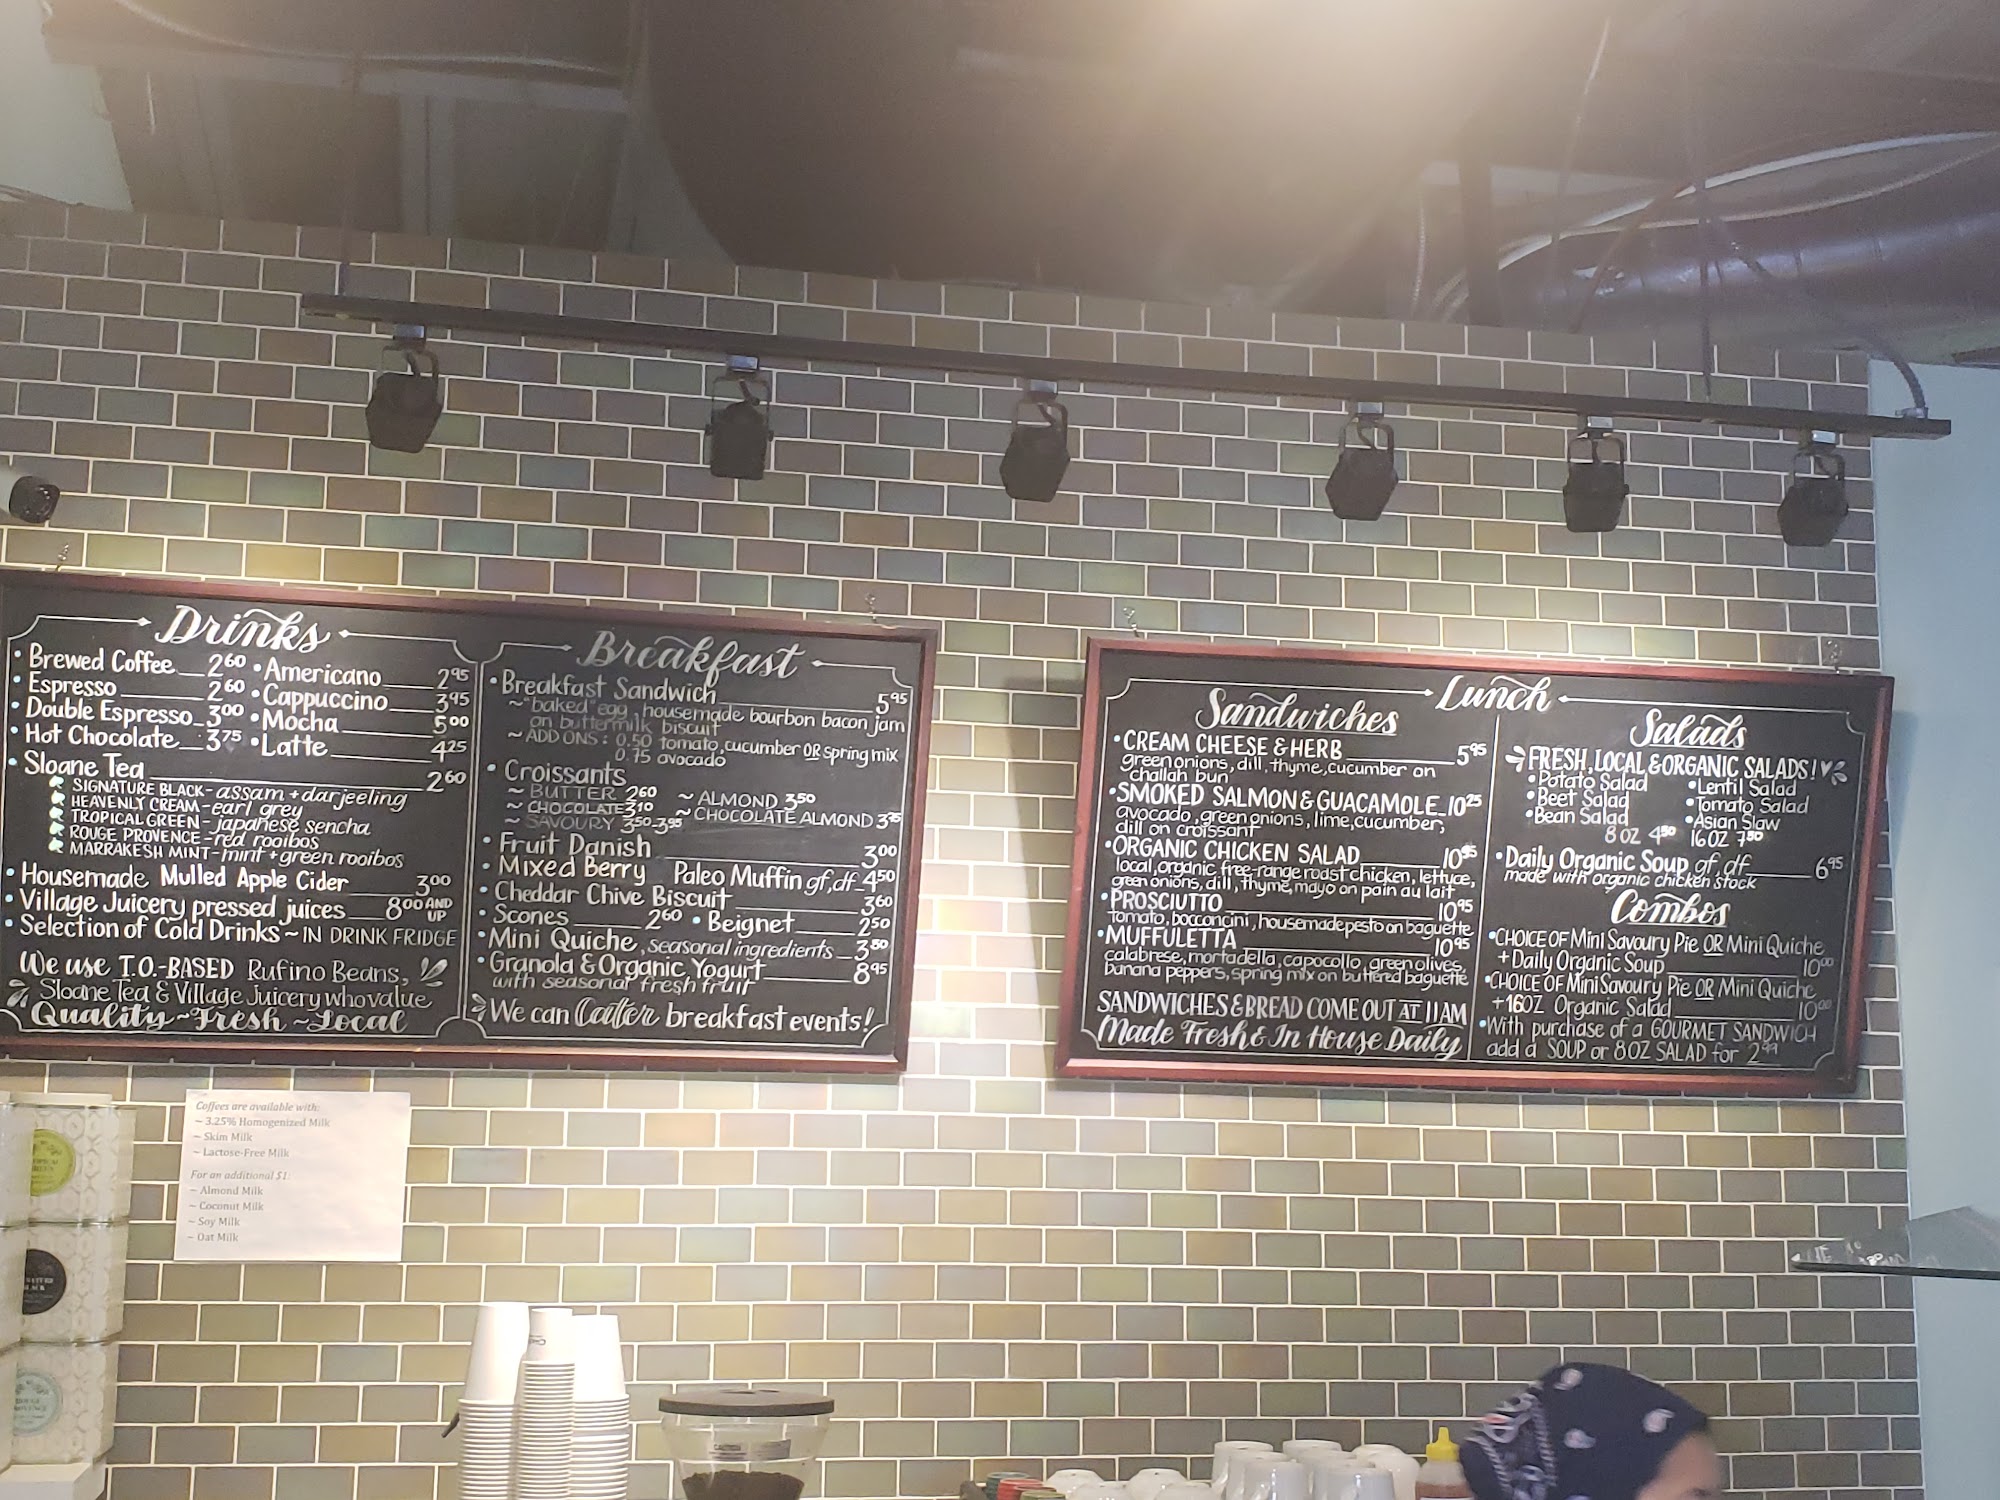 Drinks
• Brewed Coffee 2.60
• Espresso 2.60
• Double Espresso 3.00
• Hot Chocolate 3.75
• Americano 2.95
• Cappuccino 3.95
• Mocha 5.00
• Latte 4.25
• Sloane Tea 2.60
SIGNATURE BLACK - assam + darjeeling
HEAVENLY CREAM - earl grey
TROPICAL GREEN - japanese sencha
ROUGE PROVENCE - red rooibos
MARRAKESH MINT - mint + green rooibos
• Housemade Mulled Apple Cider 3.00
• Village Juicery pressed juices 8.00 AND UP
• Selection of Cold Drinks ~ IN DRINK FRIDGE
We use T.O.-BASED Rufino Beans,
Sloane Tea & Village Juicery who value
Quality ~ Fresh ~ Local
Breakfast
• Breakfast Sandwich 5.95
~ "baked" egg, housemade bourbon bacon jam
on buttermilk biscuit
~ ADD ONS: 0.50 tomato, cucumber OR spring mix
0.75 avocado
• Croissants
~ BUTTER 2.60
~ CHOCOLATE 3.10
~ SAVOURY 3.50-3.95
~ ALMOND 3.50
~ CHOCOLATE ALMOND 3.75
• Fruit Danish 3.00
• Mixed Berry Paleo Muffin gf, df 4.50
• Cheddar Chive Biscuit 3.60
• Scones 2.60 • Beignet 2.50
• Mini Quiche, seasonal ingredients 3.80
• Granola & Organic Yogurt 8.95
with seasonal fresh fruit
We can Cater breakfast events!
Lunch
Sandwiches
• CREAM CHEESE & HERB 5.95
green onions, dill, thyme, cucumber on
challah bun
• SMOKED SALMON & GUACAMOLE 10.25
avocado, green onions, lime, cucumber,
dill on croissant
• ORGANIC CHICKEN SALAD 10.95
local, organic free-range roast chicken, lettuce,
green onions, dill, thyme, mayo on pain au lait
• PROSCIUTTO 10.95
tomato, bocconcini, housemade pesto on baguette
• MUFFULETTA 10.95
calabrese, mortadella, capocollo, green olives,
banana peppers, spring mix on buttered baguette
SANDWICHES & BREAD COME OUT AT 11 AM
Made Fresh & In House Daily
Salads
FRESH, LOCAL & ORGANIC SALADS!
• Potato Salad
• Beet Salad
• Bean Salad
• Lentil Salad
• Tomato Salad
• Asian Slaw
8 OZ 4.50 16 OZ 7.80
• Daily Organic Soup gf, df 6.95
made with organic chicken stock
Combos
• CHOICE OF Mini Savoury Pie OR Mini Quiche
+ Daily Organic Soup 10.00
• CHOICE OF Mini Savoury Pie OR Mini Quiche
+ 16OZ Organic Salad 10.00
• With purchase of a GOURMET SANDWICH
add a SOUP or 8OZ SALAD for 2.99
Coffees are available with:
~ 3.25% Homogenized Milk
~ Skim Milk
~ Lactose-Free Milk
For an additional $1:
~ Almond Milk
~ Coconut Milk
~ Soy Milk
~ Oat Milk